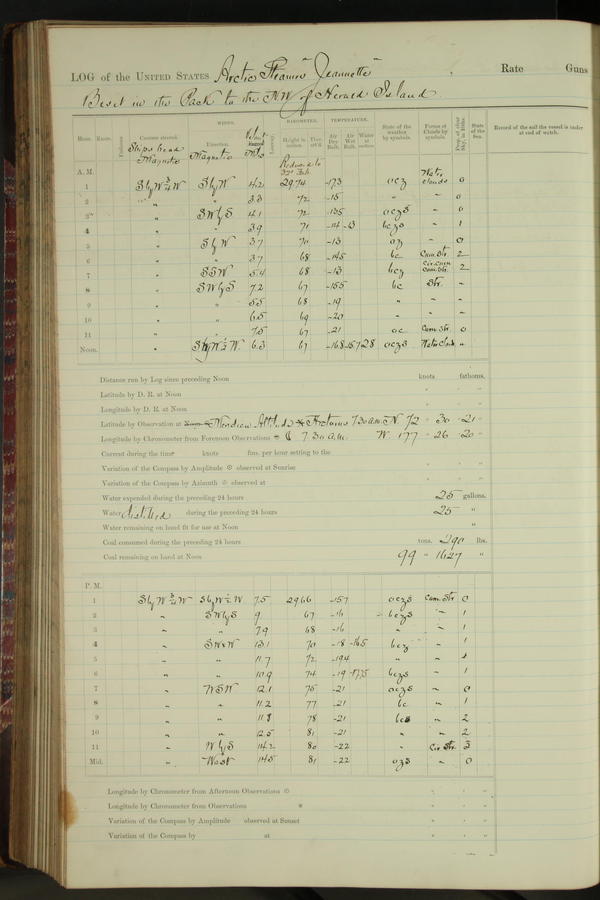 LOG of the UNITED STATES Arctic Steamer "Jeannette" , Rate Guns
Beset in the Pack to the NW of Herald Island
WINDS. BAROMETER. TEMPERATURE.
Hour. Knots. Fathoms. Courses steered. Direction. Leeway. Height in inches. Ther. att'd. Air Dry Bulb. Air Wet Bulb. Water at surface. State of the weather by symbols. Forms of Clouds by symbols. Prop. of clear Sky, in 10ths. State of the Sea. Record of the sail the vessel is under at end of watch.
Ships head Magnetic Magnetic
Reduced to 32° Fah
A. M.
1 SbyW ¾ W SbyW 4.2 29.74 -17.3 ocz Nebs clouds 0
2 " " 3.3 72 -15 " " 0
3 " SWbyS 4.1 72 -13.5 oczs " 0
4 " " 3.9 71 -14 -13 bczs " 1
5 " SbyW 3.7 70 -13 oz " 0
6 " " 3.7 68 -14.5 bc Cum. Str. 2
7 " SSW 5.4 68 -13 bcz Cir. Cum Cum. Str. 2
8 " SWbyS 7.2 67 -15.5 bc Str. "
9 " " 5.5 68 -19 " " "
10 " " 6.5 69 -20 " " "
11 " " 7.5 67 -21 oc Cum. Str. 0
Noon. " SbyW ½ W. 6.3 67 -16.8 -15.7 28 oczs "
Distance run by Log since preceding Noon knots fathoms.
Latitude by D. R. at Noon
Longitude by D. R. at Noon
Latitude by Observation at Meridian Altitude * Arcturus 7 30 a.m. N. 72 ° 30 ' 21 "
Longitude by Chronometer from Forenoon Observations ☾ 7 30 a.m. W. 177 ° 26 ' 20 "
Current during the time knots fms. per hour setting to the
Variation of the Compass by Amplitude ⊙ observed at Sunrise
Variation of the Compass by Azimuth ⊙ observed at
Water expended during the preceding 24 hours 25 gallons.
Water distilled during the preceding 24 hours 25 "
Water remaining on hand fit for use at Noon "
Coal consumed during the preceding 24 hours tons. 290 lbs.
Coal remaining on hand at Noon 99 " 1627 "
P. M.
1 SbyW ¾ W SbyW ½ W 7.5 29.66 -15.7 oczs Cum. Str. 0
2 " SWbyS 9 67 -16 bczs " 1
3 " " 7.9 68 -16 " " 1
4 " SWxW 13.1 70 -18 -16.5 bcz " 1
5 " " 11.7 72 -19.4 " " 1
6 " " 10.9 74 -19 -17.5 bczs " 1
7 " WSW 12.1 75 -21 oczs " 0
8 " " 11.2 77 -21 bc " 1
9 " " 11.8 78 -21 bcs " 2
10 " " 12.5 81 -21 " " 2
11 " WbyS 14.2 80 -22 " Cir. Str. 3
Mid. " West 14.5 81 -22 ozs " 0
Longitude by Chronometer from Afternoon Observations ⊙
Longitude by Chronometer from Observations *
Variation of the Compass by Amplitude observed at Sunset
Variation of the Compass by at